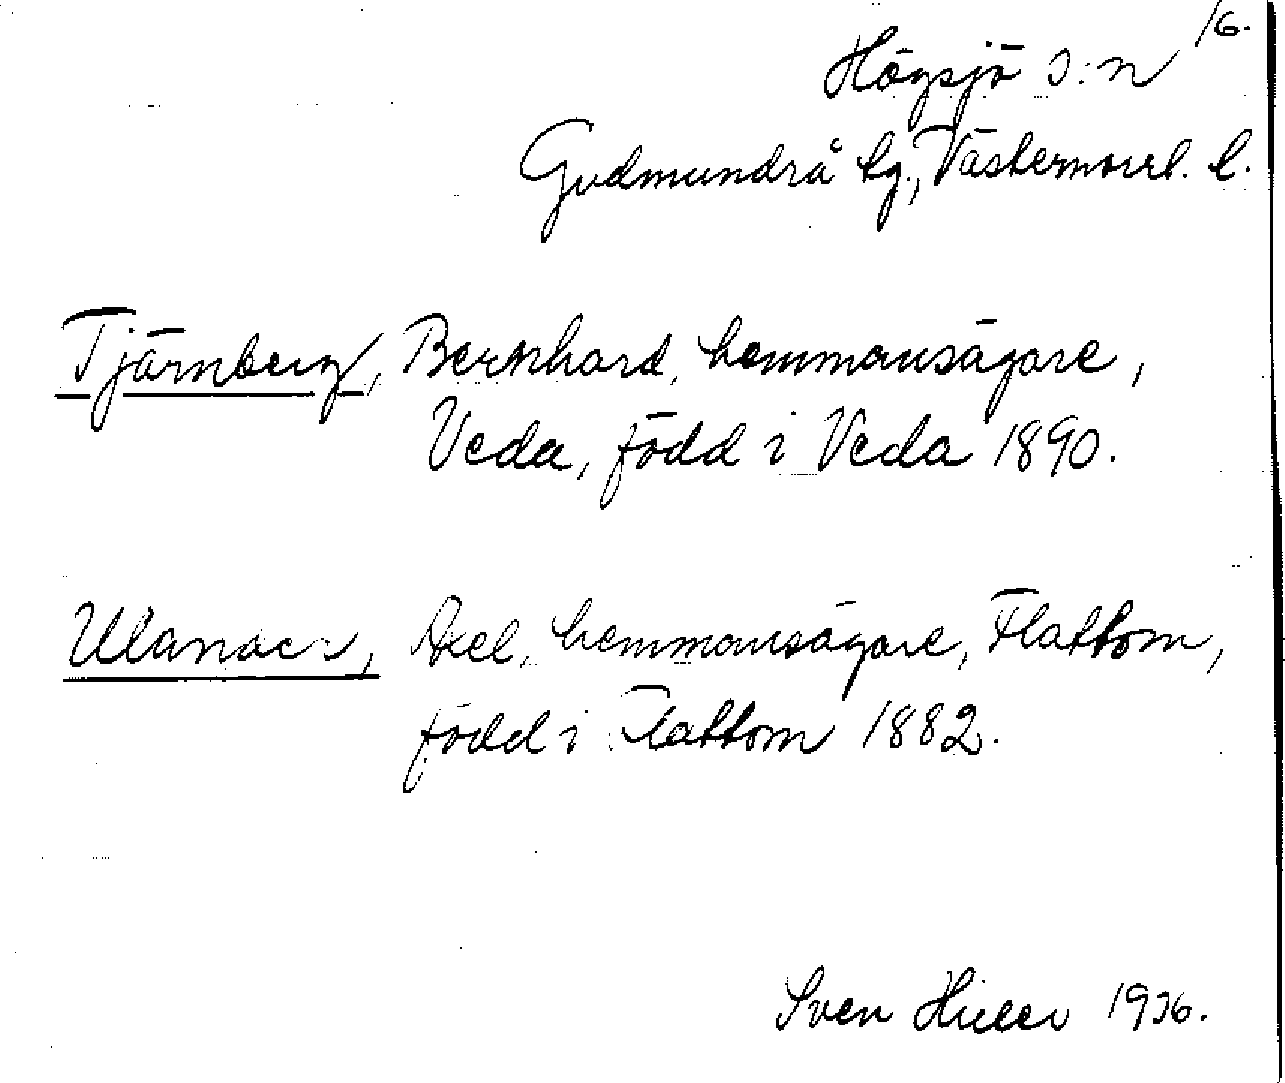 16.
Högsjö s:n
Gudmundrå tg., Västernorrl. l.
Tjärnberg, Bernhard, hemmansägare,
Veda, född i Veda 1890.
Axel, hemmansägare, Flattom,
född i Flattom 1882.
Sven Hiller 1936.